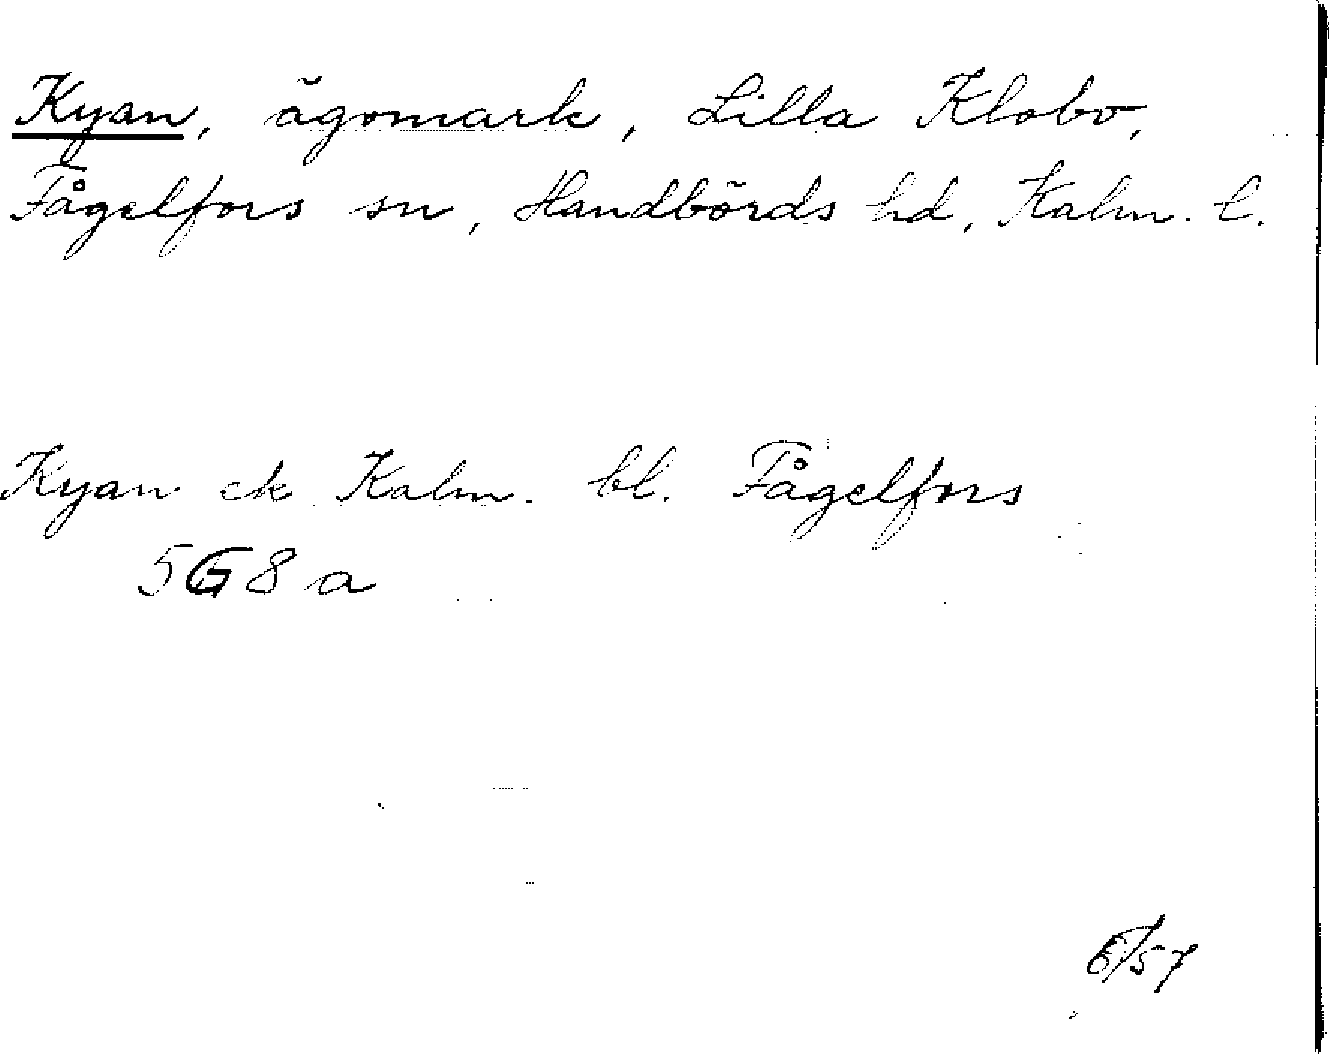 Kyan, ägomark, Lilla Klobo,
Fågelfors sn, Handbörds hd, Kalm. l.
Kyan ek Kalm. bl. Fågelfors
5G8a
6/57